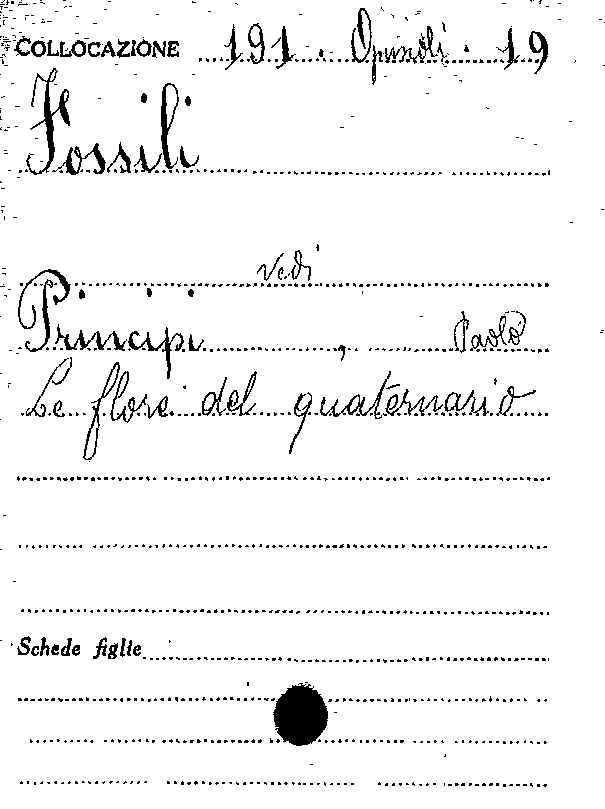 COLLOCAZIONE 191. Opuscoli. 19
Fossili
vedi
Principi, Paolo
Le flore del quaternario
Schede figlie